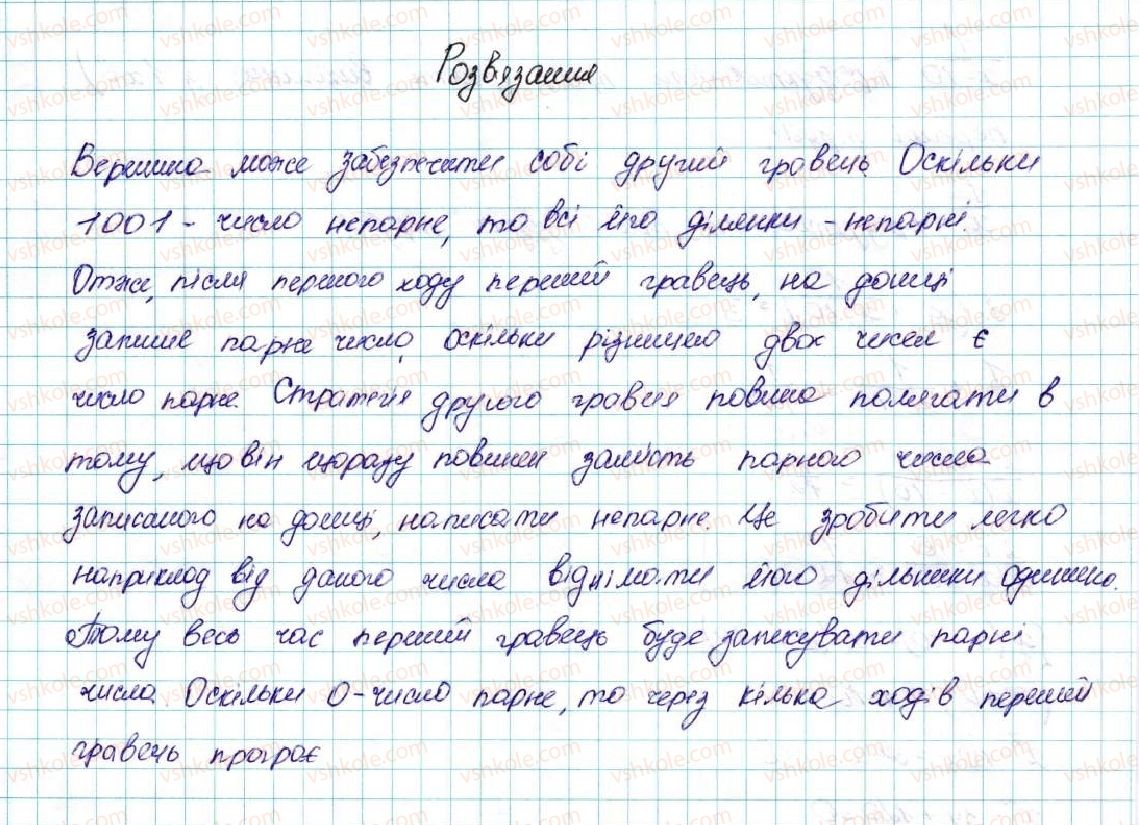 Розвязання
Верешина може забезпечити собі другий гравець Оскільки
1001 - число непарне, то всі його ділянки - непарні.
Отже, після першого ходу перший гравець, на дошці
запише парне число, оскільки різницею двох чисел є
число парне. Стратегія другого гравця повина полягати в
тому, що він щоразу повинен замість парного числа
записаного на дошці, написати непарне. Це зробити легко
наприклад від даного числа віднімати його дільники одиницю.
Тому весь час перший гравець буде записувати парні
числа. Оскільки 0 - число парне, то через кілька ходів перший
гравець програє